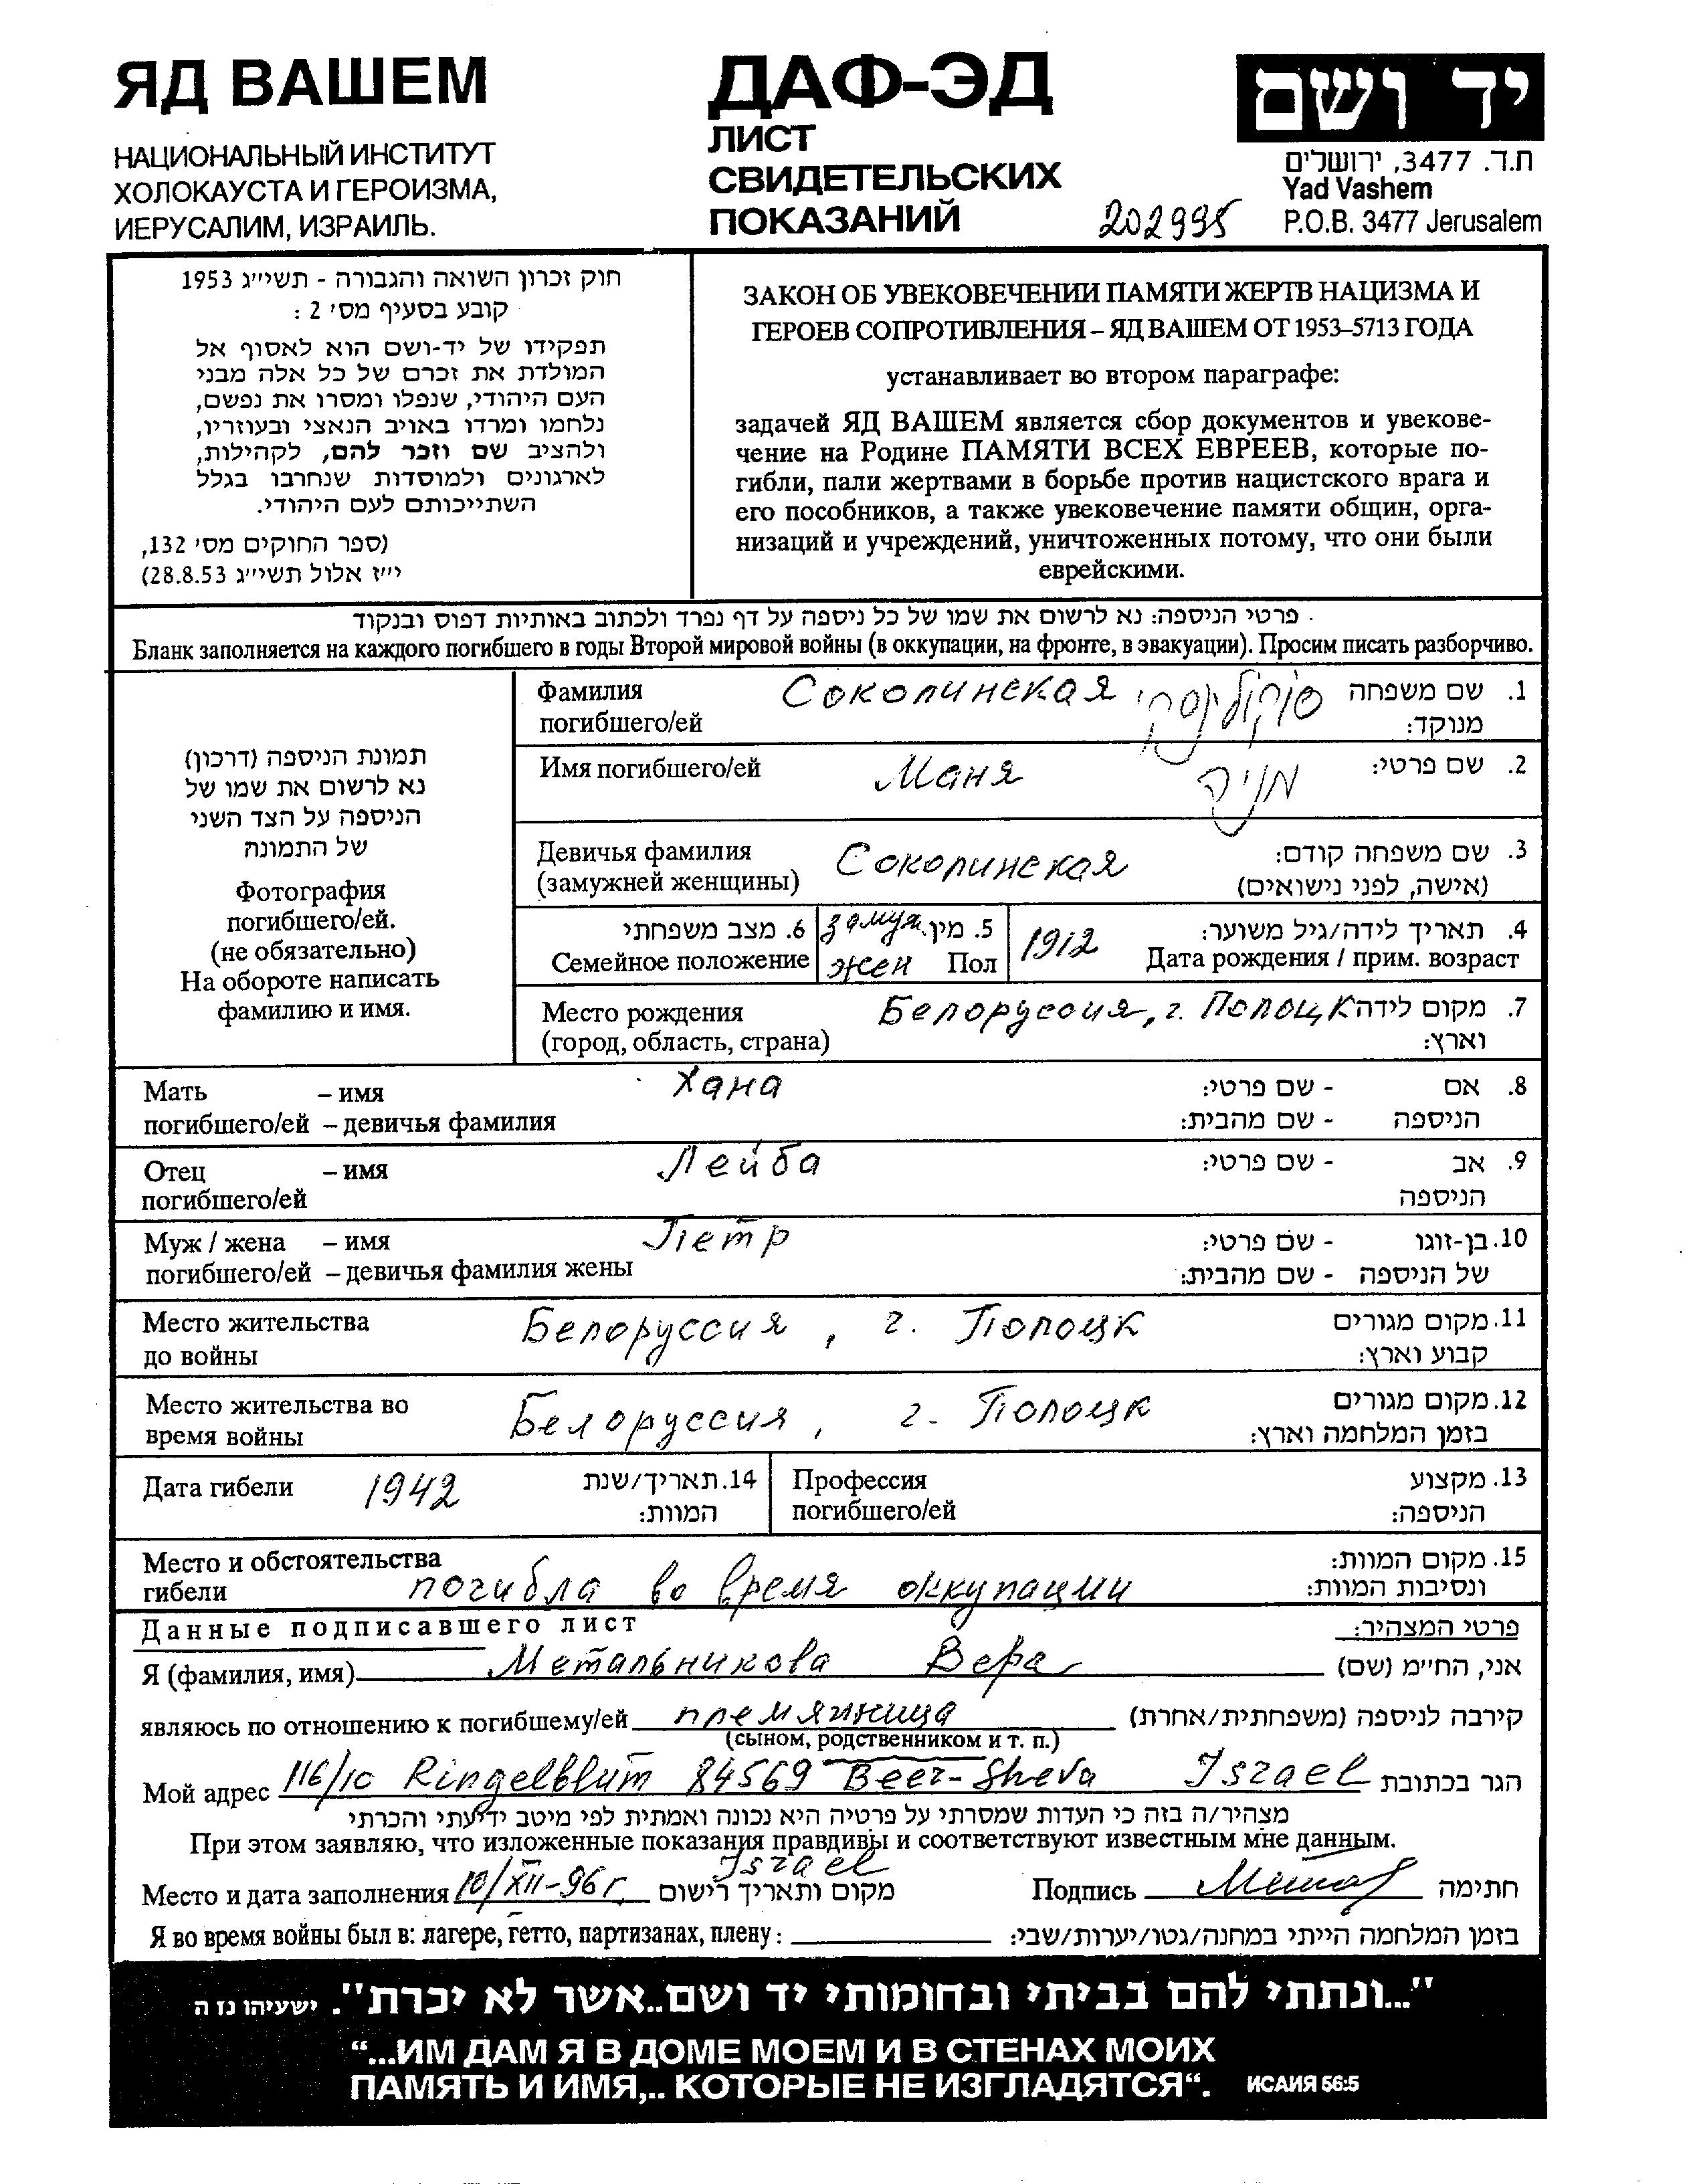 ЯД ВАШЕМ
НАЦИОНАЛЬНЫЙ ИНСТИТУТ
ХОЛОКАУСТА И ГЕРОИЗМА,
ИЕРУСАЛИМ, ИЗРАИЛЬ.
ДАФ-ЭД
ЛИСТ
СВИДЕТЕЛЬСКИХ
ПОКАЗАНИЙ
202995
יד ושם
ת.ד. 3477, ירושלים
Yad Vashem
P.O.B. 3477 Jerusalem
חוק זכרון השואה והגבורה - תשי״ג 1953
קובע בסעיף מס׳ 2 :
תפקידו של יד-ושם הוא לאסוף אל
המולדת את זכרם של כל אלה מבני
העם היהודי, שנפלו ומסרו את נפשם,
נלחמו ומרדו באויב הנאצי ובעוזריו,
ולהציב שם וזכר להם, לקהילות,
לארגונים ולמוסדות שנחרבו בגלל
השתייכותם לעם היהודי.
(ספר החוקים מס׳ 132,
י״ז אלול תשי״ג 28.8.53)
ЗАКОН ОБ УВЕКОВЕЧЕНИИ ПАМЯТИ ЖЕРТВ НАЦИЗМА И
ГЕРОЕВ СОПРОТИВЛЕНИЯ – ЯД ВАШЕМ ОТ 1953–5713 ГОДА
устанавливает во втором параграфе:
задачей ЯД ВАШЕМ является сбор документов и увекове-
чение на Родине ПАМЯТИ ВСЕХ ЕВРЕЕВ, которые по-
гибли, пали жертвами в борьбе против нацистского врага и
его пособников, а также увековечение памяти общин, орга-
низаций и учреждений, уничтоженных потому, что они были
еврейскими.
פרטי הניספה: נא לרשום את שמו של כל ניספה על דף נפרד ולכתוב באותיות דפוס ובנקוד
Бланк заполняется на каждого погибшего в годы Второй мировой войны (в оккупации, на фронте, в эвакуации). Просим писать разборчиво.
תמונת הניספה (דרכון)
נא לרשום את שמו של
הניספה על הצד השני
של התמונה
Фотография
погибшего/ей.
(не обязательно)
На обороте написать
фамилию и имя.
Фамилия Соколинская סוקולינסקי 1. שם משפחה
погибшего/ей מנוקד:
Имя погибшего/ей Маня מניה 2. שם פרטי:
Девичья фамилия Соколинская 3. שם משפחה קודם:
(замужней женщины) (אישה, לפני נישואים)
6. מצב משפחתי замуж. 5. מין 4. תאריך לידה/גיל משוער:
Семейное положение жен Пол 1912 Дата рождения / прим. возраст
Место рождения Белоруссия, г. Полоцк 7. מקום לידה
(город, область, страна) וארץ:
Мать – имя Хана 8. אם - שם פרטי:
погибшего/ей – девичья фамилия הניספה - שם מהבית:
Отец – имя Лейба 9. אב - שם פרטי:
погибшего/ей הניספה
Муж / жена – имя Петр 10. בן-זוגו - שם פרטי:
погибшего/ей – девичья фамилия жены של הניספה - שם מהבית:
Место жительства Белоруссия, г. Полоцк 11. מקום מגורים
до войны קבוע וארץ:
Место жительства во Белоруссия, г. Полоцк 12. מקום מגורים
время войны בזמן המלחמה וארץ:
Дата гибели 1942 14. תאריך/שנת Профессия 13. מקצוע
המוות: погибшего/ей הניספה:
Место и обстоятельства 15. מקום המוות:
гибели погибла во время оккупации ונסיבות המוות:
Данные подписавшего лист פרטי המצהיר:
Я (фамилия, имя) Метальникова Вера אני, החי״מ (שם)
являюсь по отношению к погибшему/ей племяница קירבה לניספה (משפחתית/אחרת)
(сыном, родственником и т. п.)
Мой адрес 116/10 Ringelblum 84569 Beer-Sheva Israel הגר בכתובת
מצהיר/ה בזה כי העדות שמסרתי על פרטיה היא נכונה ואמתית לפי מיטב ידיעתי והכרתי
При этом заявляю, что изложенные показания правдивы и соответствуют известным мне данным.
Israel
Место и дата заполнения 10/XII-96 г. מקום ותאריך רישום Подпись חתימה
Я во время войны был в: лагере, гетто, партизанах, плену: בזמן המלחמה הייתי במחנה/גטו/יערות/שבי:
"...ונתתי להם בביתי ובחומותי יד ושם..אשר לא יכרת". ישעיהו נז ה
“...ИМ ДАМ Я В ДОМЕ МОЕМ И В СТЕНАХ МОИХ
ПАМЯТЬ И ИМЯ,.. КОТОРЫЕ НЕ ИЗГЛАДЯТСЯ“. ИСАИЯ 56:5